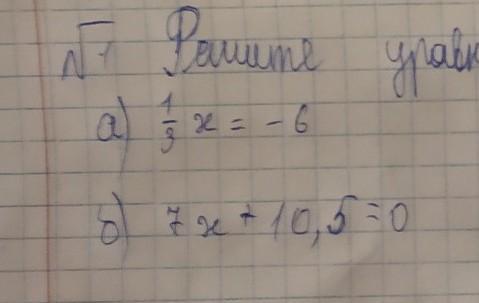 №1 Решите уравн
а) 1/3 x = -6
б) 7x + 10,5 = 0